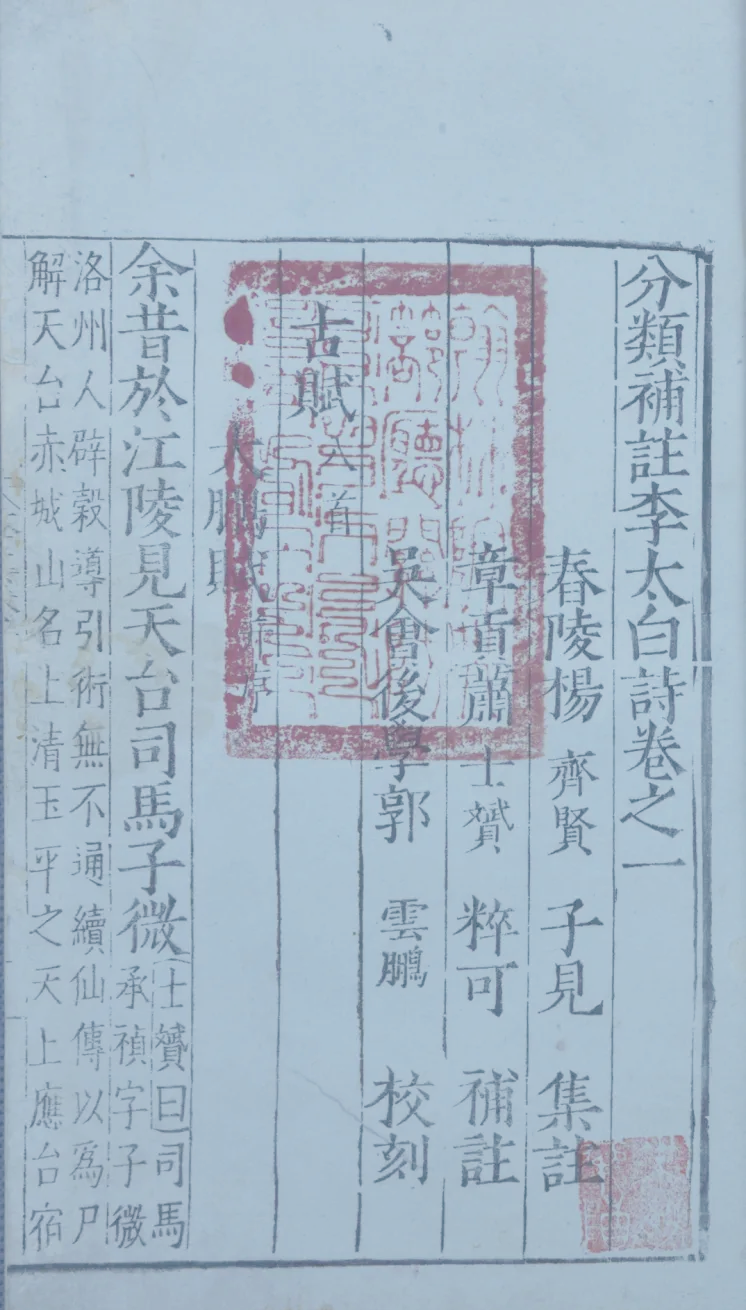 分類補註李太白詩卷之一
舂陵楊 齊賢 子見 集註
章貢蕭 士贇 粹可 補註
吳會後學郭 雲鵬 校刻
古賦八首
大鵬賦并序
余昔於江陵見天台司馬子微士贇曰司馬
承禎字子微
洛州人辟穀導引術無不通續仙傳以爲尸
解天台赤城山名上清玉平之天上應台宿